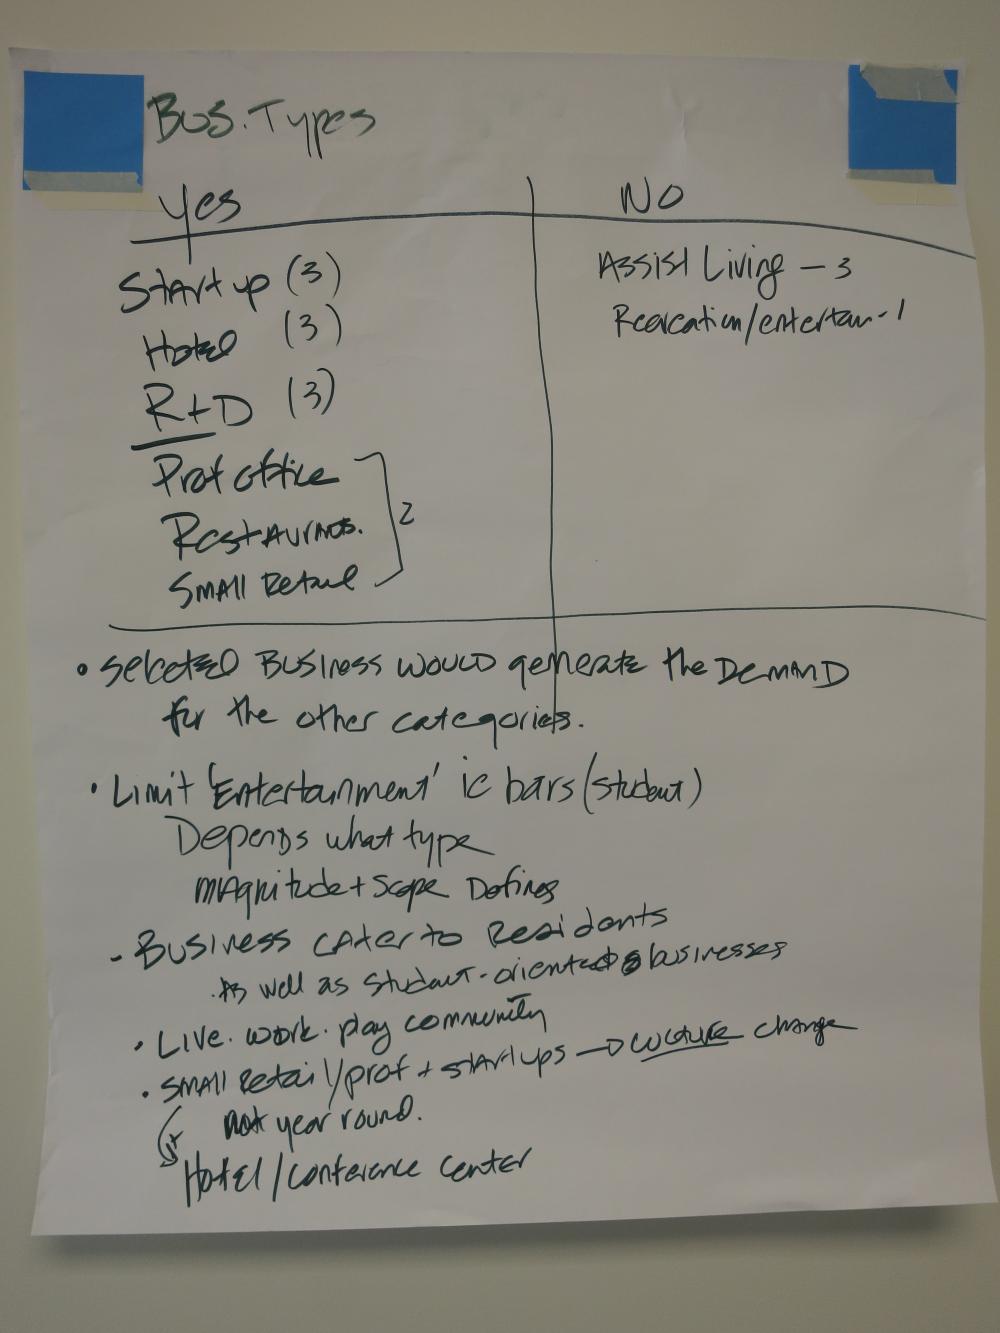 Bus. Types
Yes
No
Startup (3)
Hotel (3)
R+D (3)
Prof office
Restaurants.
Small Retail
2
Assist Living - 3
Recreation/entertain - 1
• Selected Business would generate the Demand
for the other categories.
• Limit 'Entertainment' ie bars (student)
Depends what type
magnitude + scope Defines
- Business cater to Residents
As well as student-oriented businesses
• Live. work. play community
• Small Retail/prof + startups → culture change
not year round.
Hotel/conference center